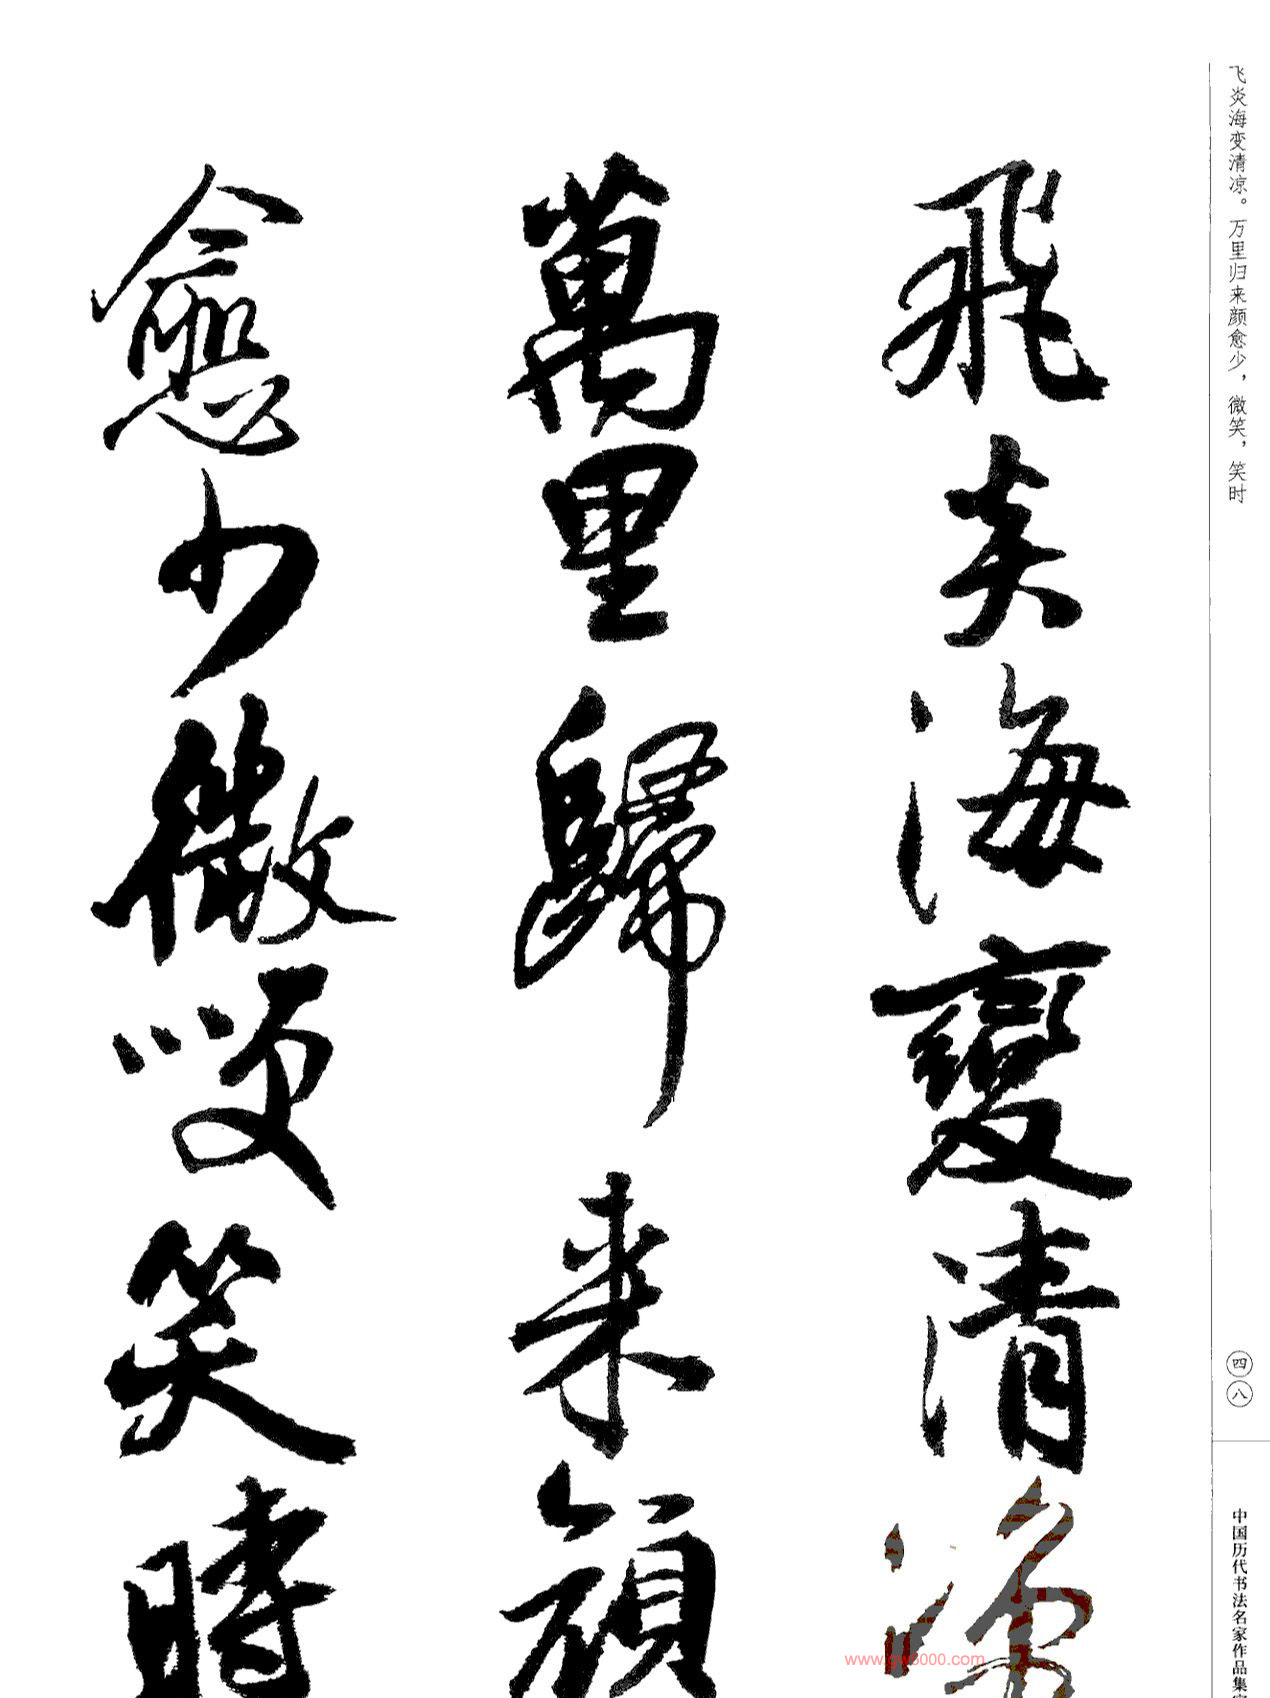 飞炎海变清凉。万里归来颜愈少，微笑，笑时
飛炎海變清涼
萬里歸来顔
愈少微咲笑時
四八
中国历代书法名家作品集字
www.gw8000.com